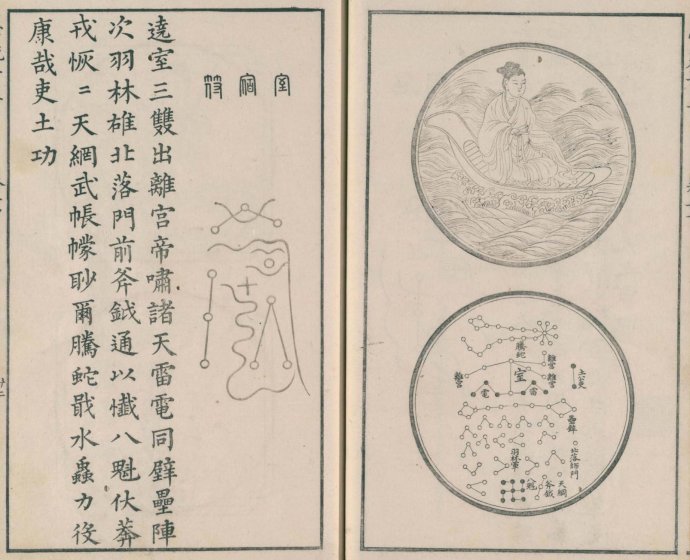 騰蛇
離宮
離宮
離宮
室
土公吏
電
雷
北落師門
羽林軍
八魁
斧鉞
天網
室宿符
遶室三雙出離宮帝嘯諸天雷電同壁壘陣
次羽林雄北落門前斧鉞通以懺八魁伏莽
戎恢〻天網武帳幪眇爾騰蛇戢水蟲力役
康哉吏土功